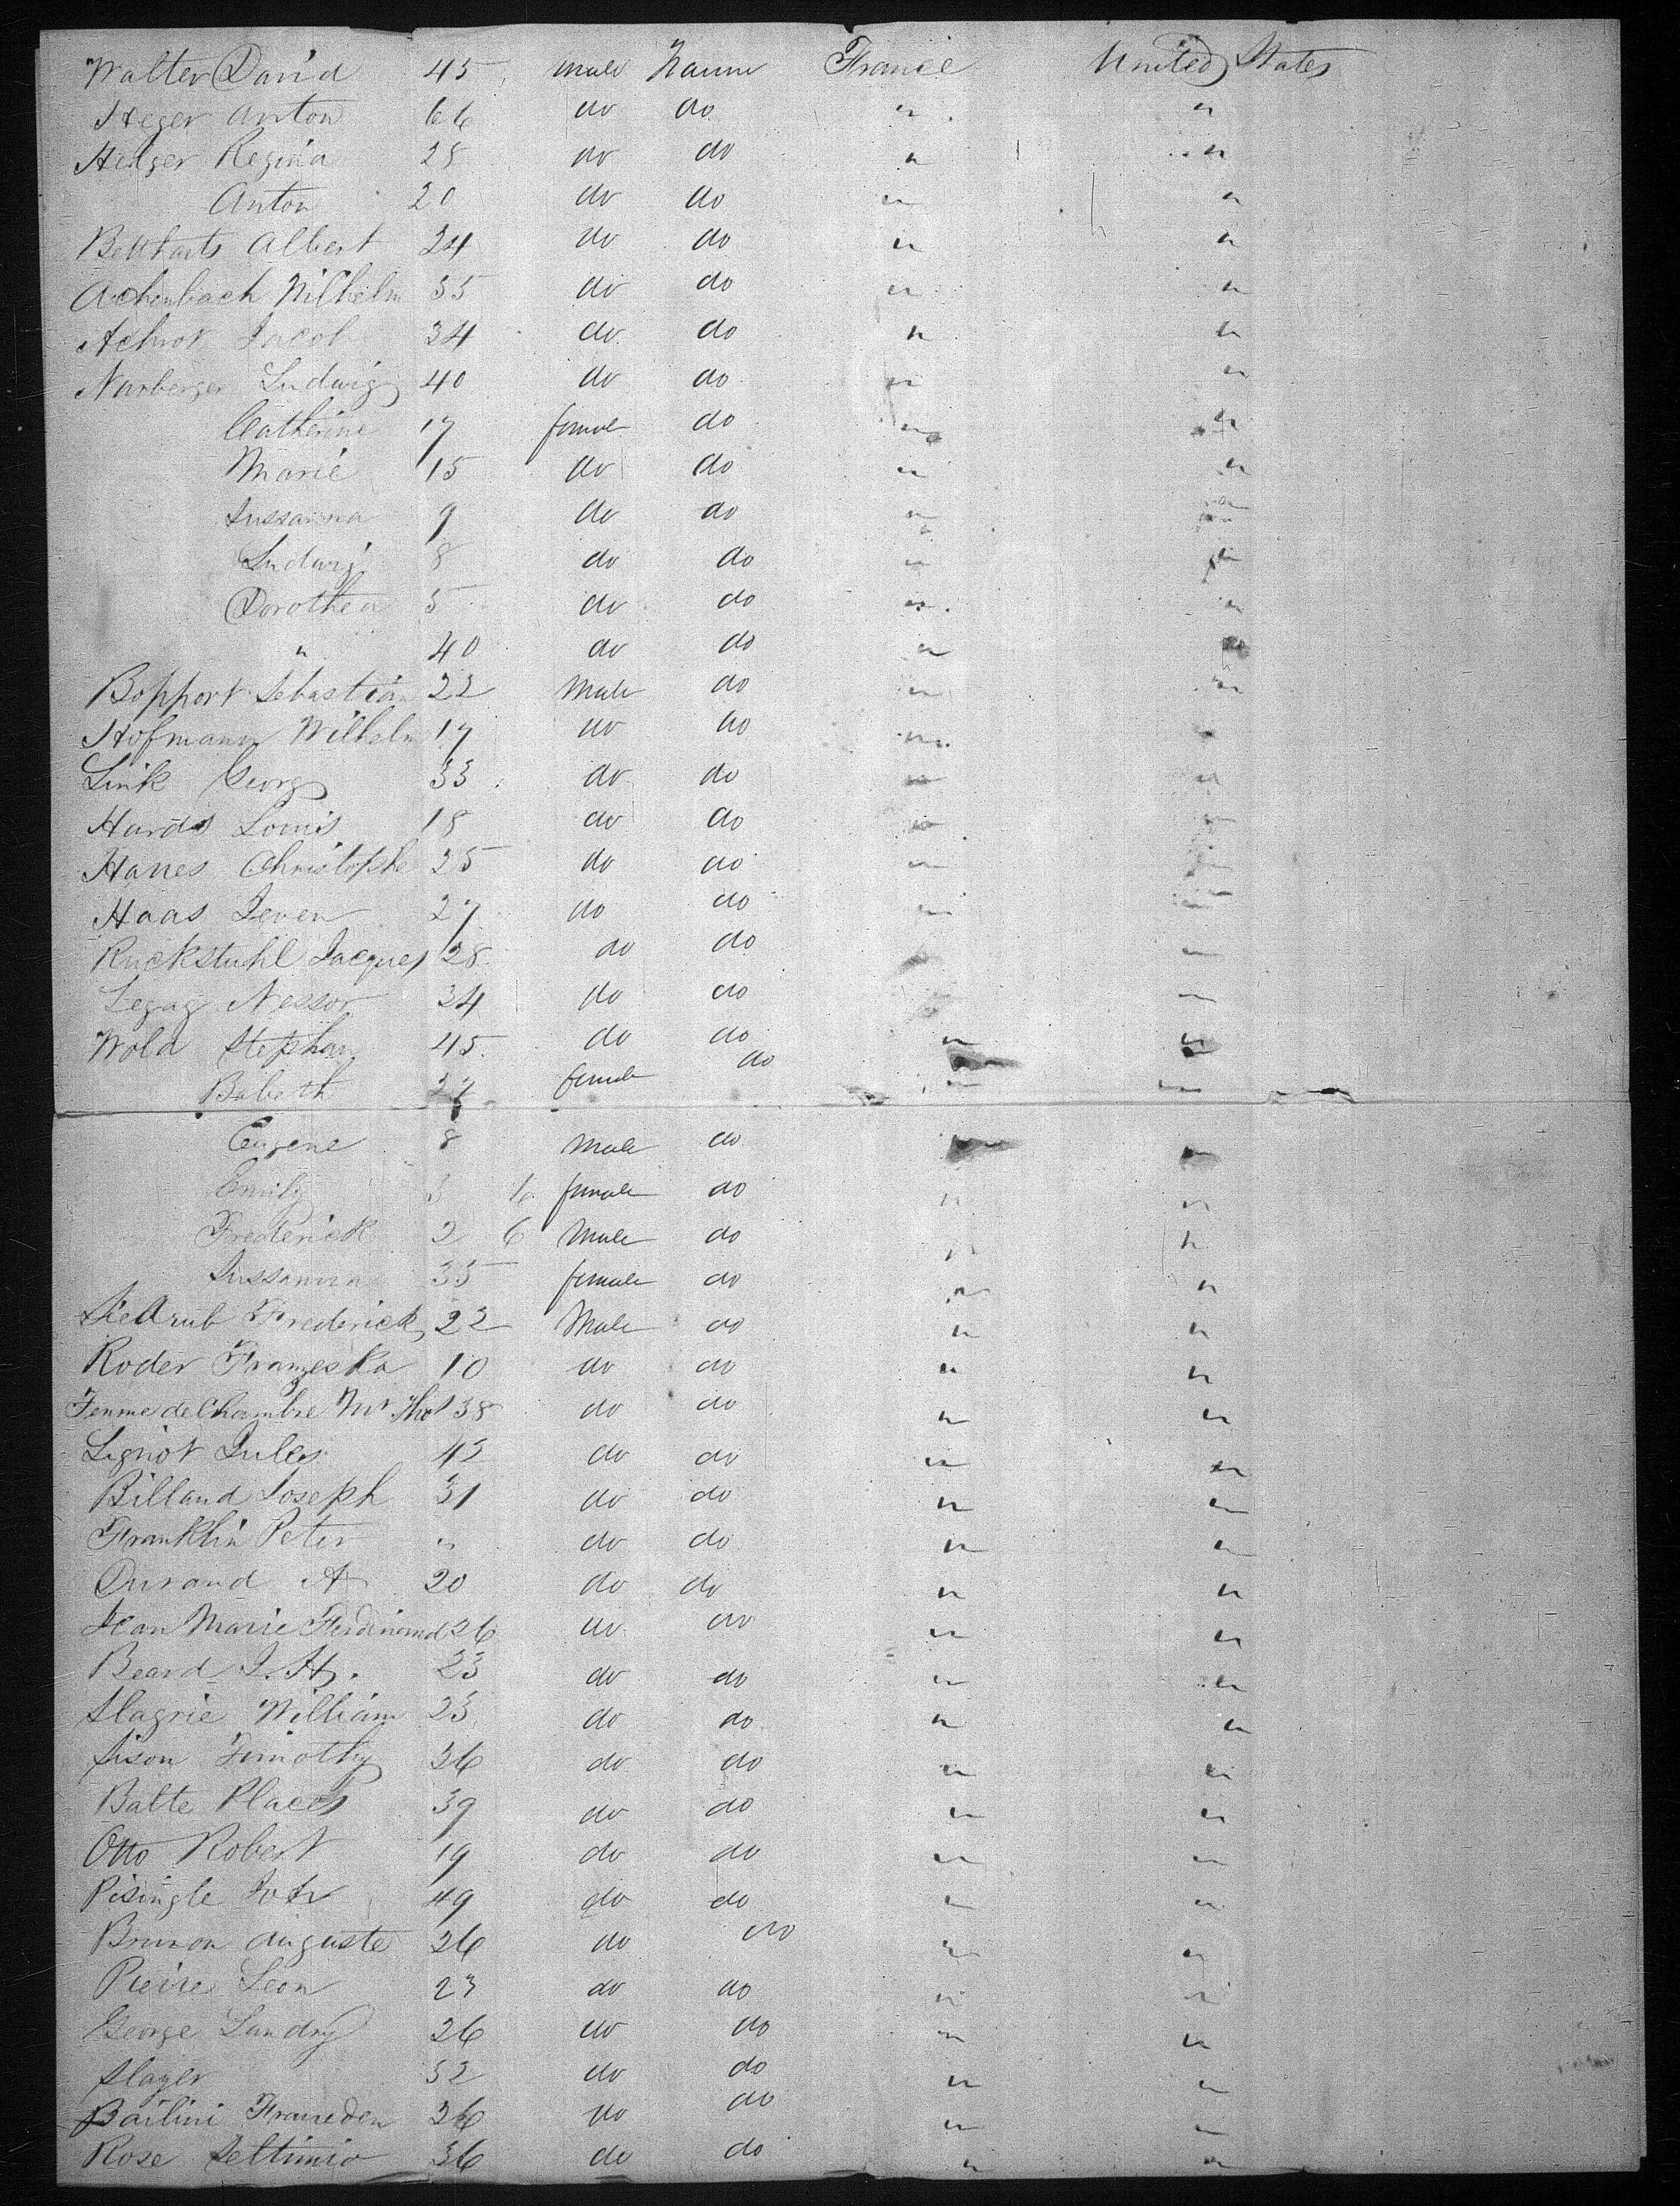 Walter David 45 male Nanne France United States
Heger Anton 66 do do " "
Hedger Regina 28 do do " "
Anton 20 do do " "
Albert 24 do do " "
Achenbach Wilhelm 35 do do " "
Jacob 34 do do " "
Narberger Ludwig 40 do do " "
Catherine 17 female do " "
Marie 15 do do " "
Sussanna 9 do do " "
Ludwig 8 do do " "
Dorothea 5 do do " "
" 40 do do " "
Bopport Sebastian 22 Male do " "
Hofmann Wilhelm 17 do do " "
Link Georg 33 do do " "
Hards Louis 18 do do " "
Hanes Christophe 25 do do " "
Haas 27 do do " "
Ruckstuhl Jacques 28 do do " "
Legag Nessor 34 do do " "
Wold Stephan 45 do do " "
Babeth 27 female do " "
Eugene 8 Male do " "
Emily 3 6 female do " "
Frederick 2 6 Male do " "
Sussanna 35 female do " "
Frederick 22 Male do " "
Roder Franzeska 10 do do " "
Femme de Chambre Mr 38 do do " "
Lignot Jules 42 do do " "
Billand Joseph 31 do do " "
Franklin Peter " do do " "
Durand A 20 do do " "
Jean Marie Ferdinand 26 do do " "
Beard J. H. 23 do do " "
Slagrie William 23 do do " "
Sison Timothy 26 do do " "
Batte Places 39 do do " "
Otto Robert 19 do do " "
Pisingle 49 do do " "
Brunon Auguste 26 do do " "
Pierre Leon 23 do do " "
George Landry 26 do do " "
Slager 32 do do " "
Bailini 26 do do " "
Rose Seltimio 36 do do " "